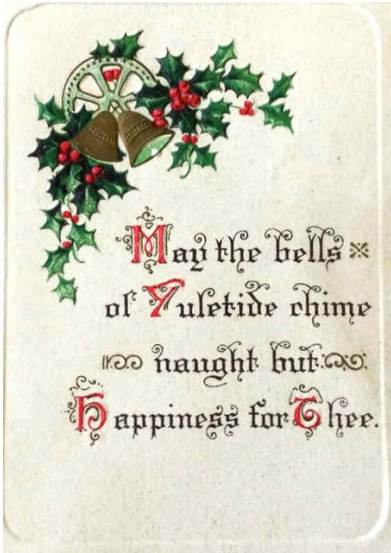 May the bells
of Yuletide chime
naught but
Happiness for Thee.